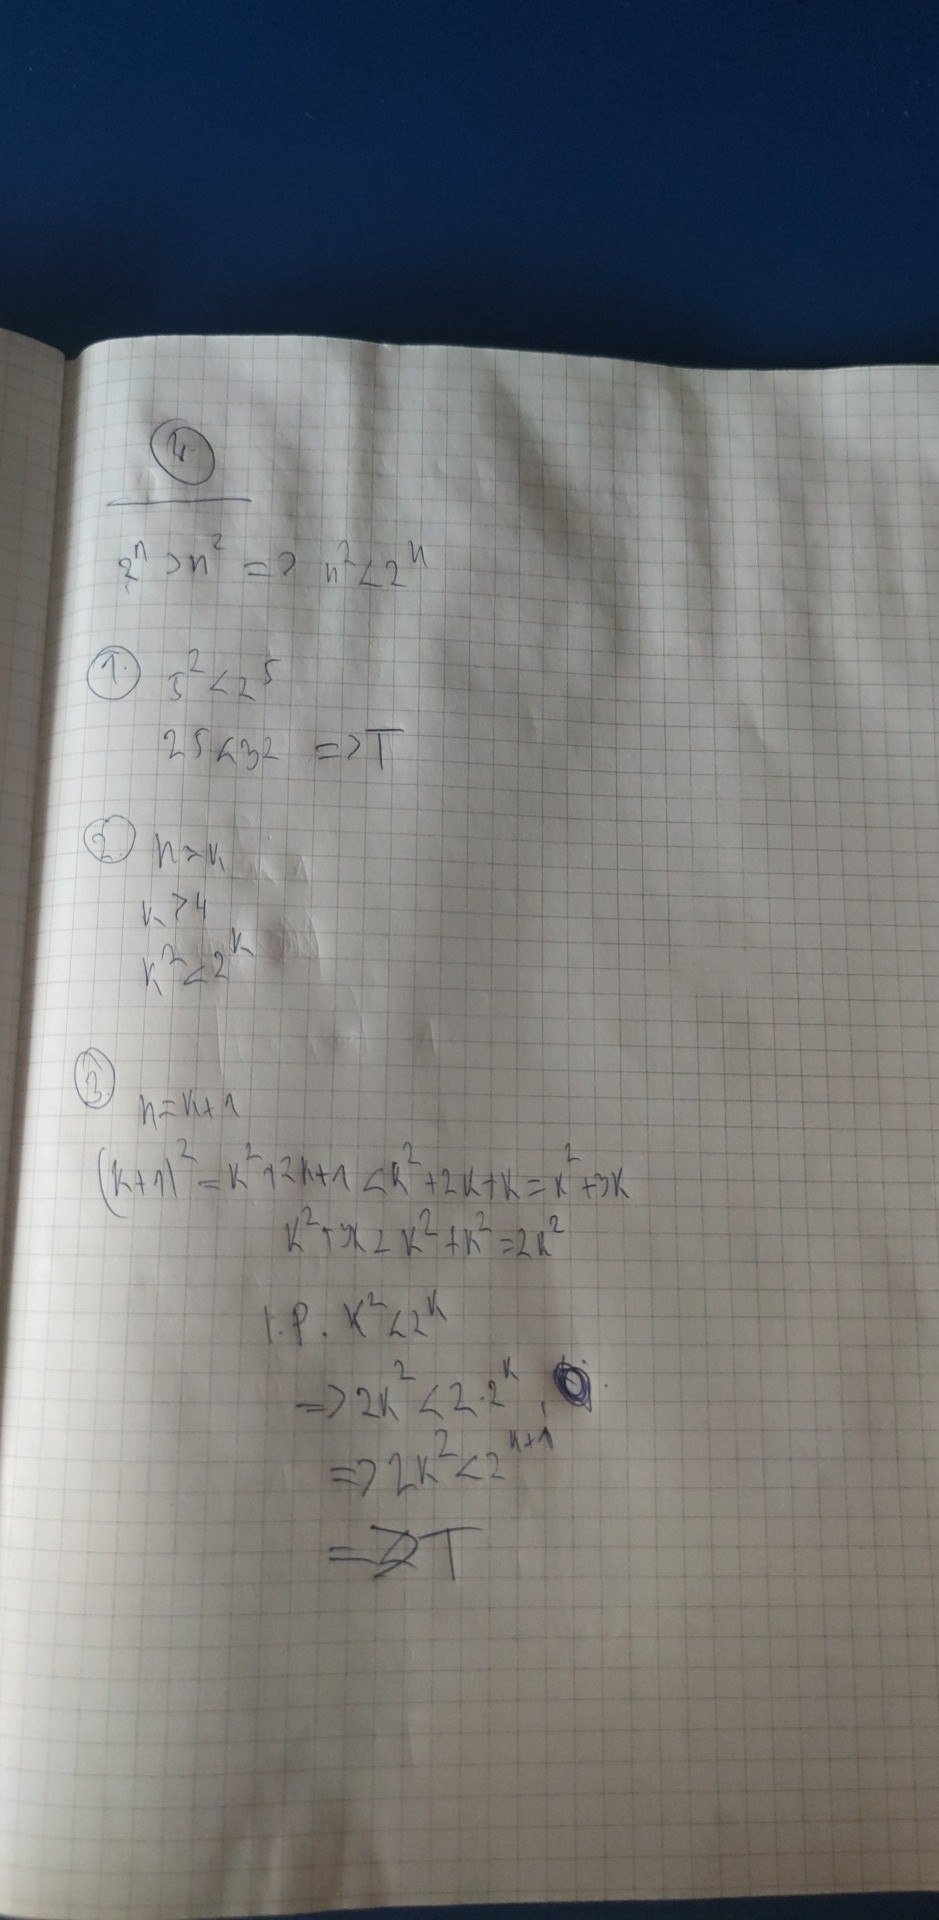 4.
2ⁿ > n² => n² < 2ⁿ
1. 5² < 2⁵
25 < 32 => T
2. n = k
k > 4
k² < 2ᵏ
3.
n = k + 1
(k+1)² = k² + 2k + 1 < k² + 2k + k = k² + 3k
k² + 3k < k² + k² = 2k²
I.P. k² < 2ᵏ
=> 2k² < 2 · 2ᵏ
=> 2k² < 2ᵏ⁺¹
=> T